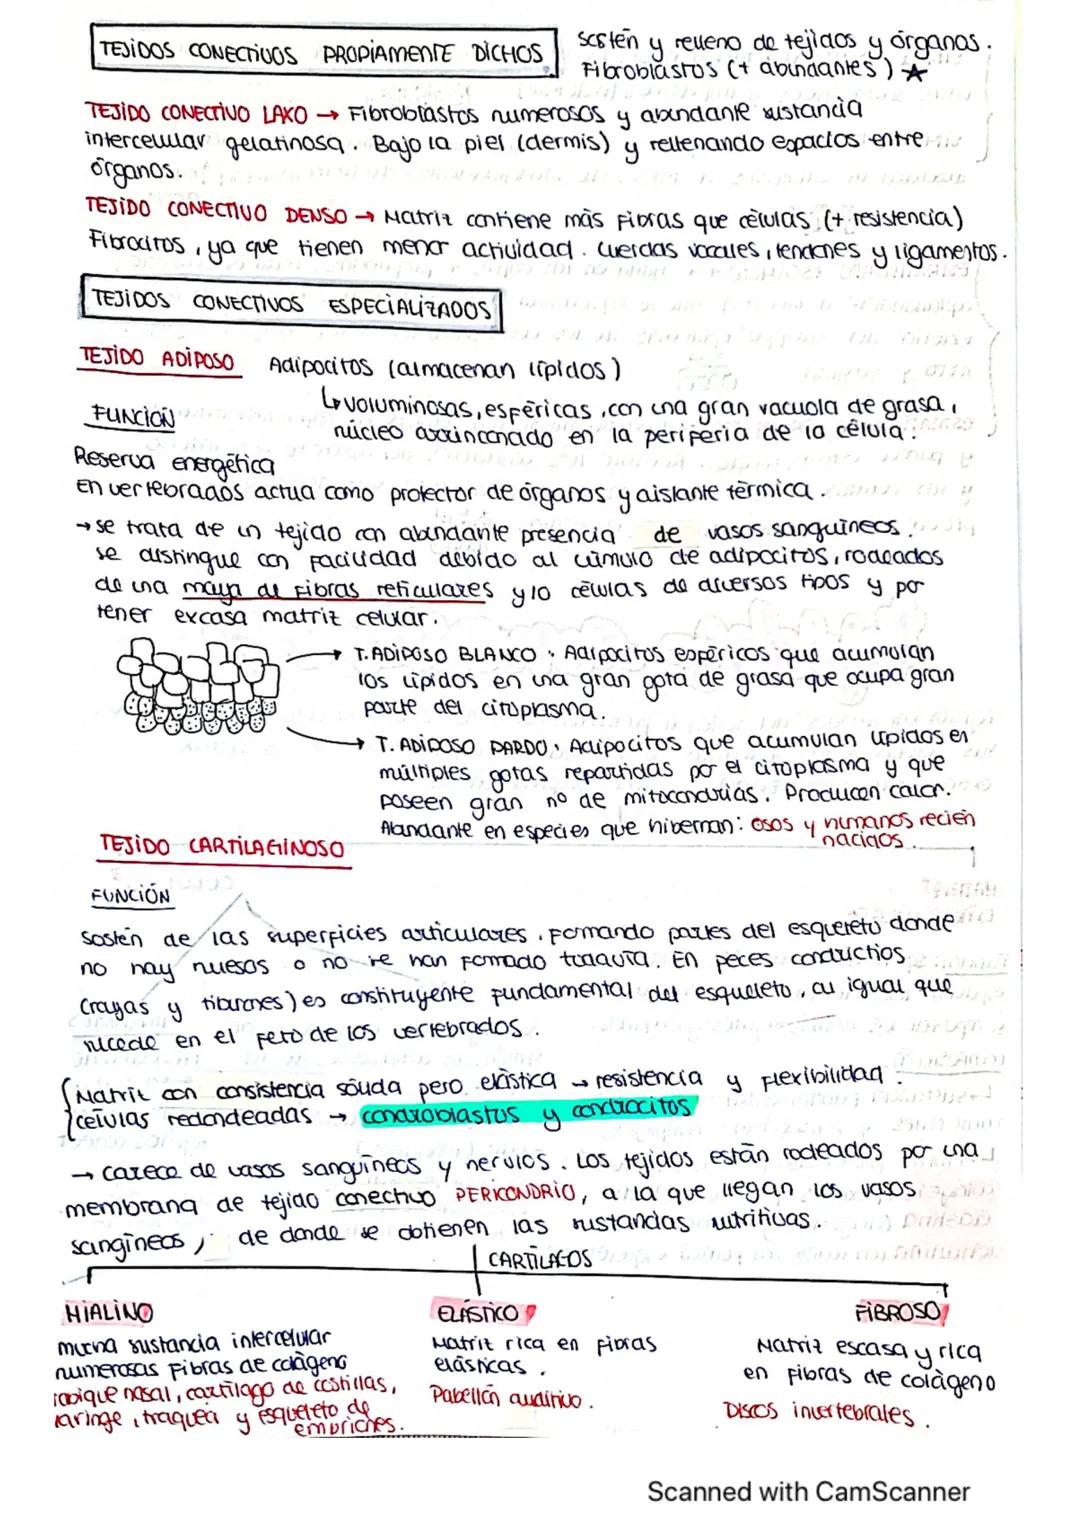 TEJIDOS CONECTIVOS PROPIAMENTE DICHOS
sostén y relleno de tejidos y órganos.
Fibroblastos (+ abundantes) ★
TEJIDO CONECTIVO LAXO → Fibroblastos numerosos y abundante sustancia
intercelular gelatinosa. Bajo la piel (dermis) y rellenando espacios entre
órganos.
TEJIDO CONECTIVO DENSO → Matriz contiene más fibras que células (+ resistencia)
Fibrocitos, ya que tienen menor actividad. Cuerdas vocales, tendones y ligamentos.
TEJIDOS CONECTIVOS ESPECIALIZADOS
TEJIDO ADIPOSO Adipocitos (almacenan lípidos)
↳ voluminosas, esféricas, con una gran vacuola de grasa,
núcleo arrinconado en la periferia de la célula.
FUNCIÓN
Reserva energética
En vertebrados actúa como protector de órganos y aislante térmica.
→ se trata de un tejido con abundante presencia de vasos sanguíneos.
se distingue con facilidad debido al cúmulo de adipocitos, rodeados
de una maya de fibras reticulares y/o células de diversos tipos y por
tener excasa matriz celular.
→ T. ADIPOSO BLANCO: Adipocitos esféricos que acumulan
los lípidos en una gran gota de grasa que ocupa gran
parte del citoplasma.
→ T. ADIPOSO PARDO: Adipocitos que acumulan lípidos en
múltiples gotas repartidas por el citoplasma y que
poseen gran nº de mitocondrias. Producen calor.
Abundante en especies que hibernan: osos y humanos recién
nacidos.
TEJIDO CARTILAGINOSO
FUNCIÓN
sostén de las superficies articulares. Formando partes del esqueleto donde
no hay huesos o no se han formado todavía. En peces conductios
(rayas y tiburones) es constituyente fundamental del esqueleto, al igual que
sucede en el feto de los vertebrados.
Matriz con consistencia sólida pero elástica → resistencia y flexibilidad.
células redondeadas → condroblastos y condrocitos
→ carece de vasos sanguíneos y nervios. Los tejidos están rodeados por una
membrana de tejido conectivo PERICONDRIO, a la que llegan los vasos
sangíneos, de donde se obtienen las sustancias nutritivas.
CARTÍLAGOS
HIALINO
mucha sustancia intercelular
numerosas fibras de colágeno
tabique nasal, cartílago de costillas,
laringe, traquea y esqueleto de
embriones.
ELÁSTICO
Matriz rica en fibras
elásticas.
Pabellón auditivo.
FIBROSO
Matriz escasa y rica
en fibras de colágeno
Discos invertebrales.
Scanned with CamScanner